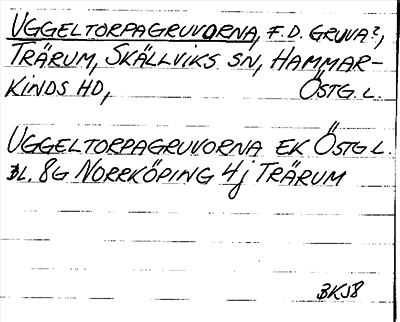 UGGELTORPAGRUVORNA, F.D. GRUVA?,
TRÄRUM, SKÄLLVIKS SN, HAMMAR-
KINDS HD, ÖSTG. L.
UGGELTORPAGRUVORNA EK ÖSTG L.
BL. 8G NORRKÖPING 4j TRÄRUM
BKJ8